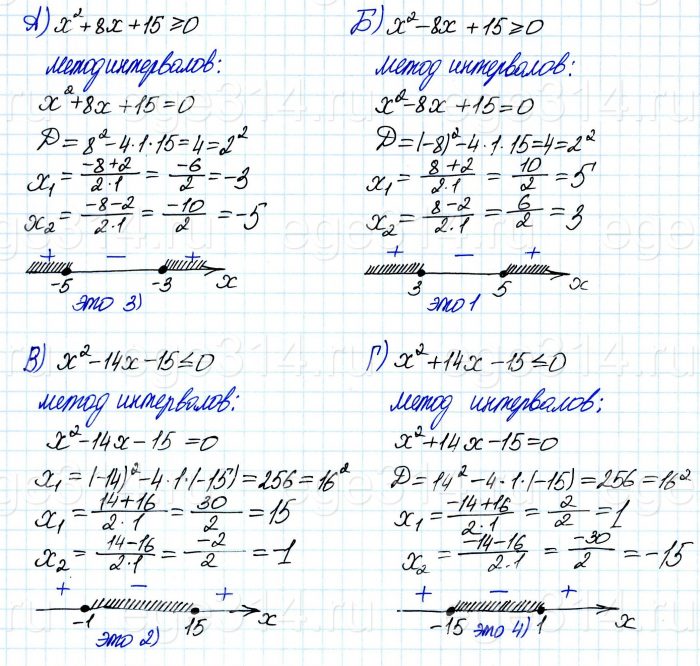 А) x²+8x+15≥0
метод интервалов:
x²+8x+15=0
Д=8²-4·1·15=4=2²
x₁=(-8+2)/(2·1)=-6/2=-3
x₂=(-8-2)/(2·1)=-10/2=-5
+ - +
-5 -3 x
это 3)
Б) x²-8x+15≥0
метод интервалов:
x²-8x+15=0
Д=(-8)²-4·1·15=4=2²
x₁=(8+2)/(2·1)=10/2=5
x₂=(8-2)/(2·1)=6/2=3
+ - +
3 5 x
это 1
В) x²-14x-15≤0
метод интервалов:
x²-14x-15=0
x₁=(-14)²-4·1·(-15)=256=16²
x₁=(14+16)/(2·1)=30/2=15
x₂=(14-16)/(2·1)=-2/2=-1
+ - +
-1 15 x
это 2)
Г) x²+14x-15≤0
метод интервалов:
x²+14x-15=0
Д=14²-4·1·(-15)=256=16²
x₁=(-14+16)/(2·1)=2/2=1
x₂=(-14-16)/(2·1)=-30/2=-15
+ - +
-15 1 x
это 4)